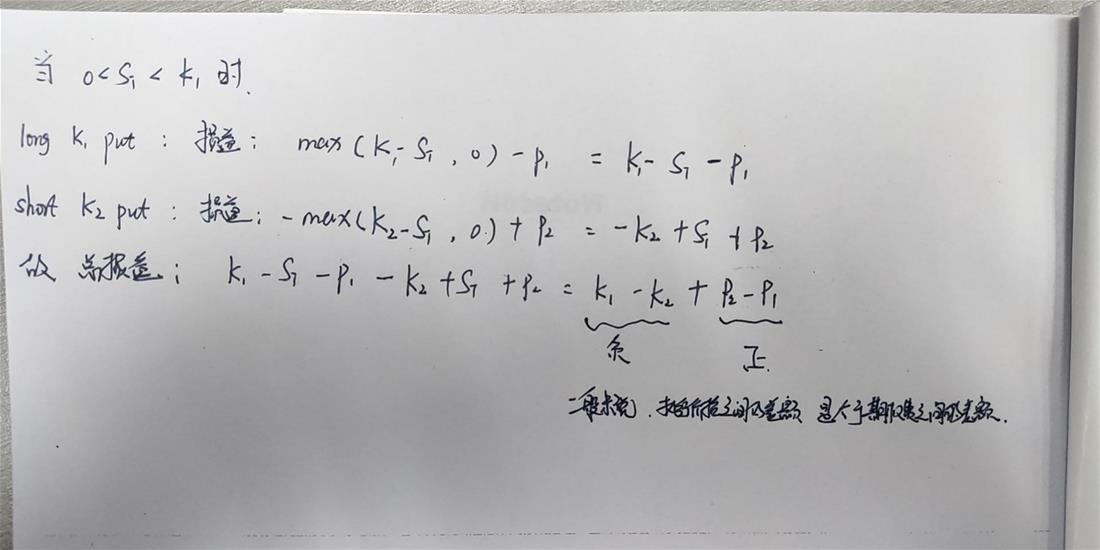 当 0 < S₁ < K₁ 时.
long K₁ put : 损益 : max(K₁-S₁ , 0) - P₁ = K₁ - S₁ - P₁
short K₂ put : 损益 : -max(K₂-S₁ , 0) + P₂ = -K₂ + S₁ + P₂
故 总损益 ; K₁ - S₁ - P₁ - K₂ + S₁ + P₂ = K₁ - K₂ + P₂ - P₁
负 正.
一般来说 . 执行价格之间的差额 是大于期权费之间的差额.